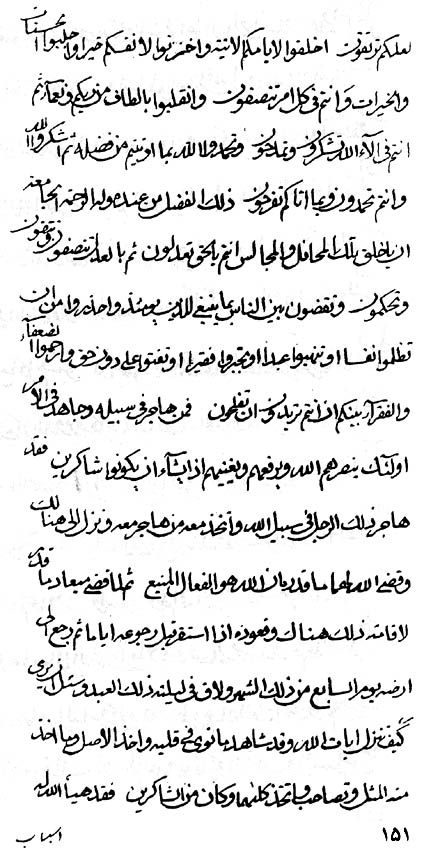 لعلكم ترتقون اخلقوا لايامكم الآتية واخزنوا لانفسكم خيرا واجلبوا المحسنات
والخيرات وانتم في كل امر تنصفون وانقلبوا بالطاف من ربكم ونعمآء ثم
انتم في آلآء الله تشكرون وتمدحون وتحمدوا الله بما اوتيتم من فضله ثم اشكروا الله
وانتم تحمدون وبما اتاكم تفرحون ذلك الفضل من عنده وله الرحمة
ان باخلق تلك المحافل والمجالس انتم بالحق تعدلون ثم بالعدل تنصفون وتتقون
وتحكمون وتقضون بين الناس بما ينبغي يومئذ واحذروا من ان
تظلموا نفسا او تنهبوا عبدا او فقيرا او تفتوا على دون حق وارحموا الضعفآء
والفقرآء بينكم ان انتم تريدون ان تفلحون فمن هاجر في سبيله وجاهد في الامر
اولئك ينصرهم الله ويرفعهم ويغنيهم اذا يشآء ان يكونوا شاكرين فقد
هاجر ذلك الرجل في سبيل الله واتخذ معه من هاجر معه ونزل الى هنالك
وقضى الله لهما ما قدر بان الله هو الفعال المنيع ثم لما قضى ميعاد ما قدر
لاقامته ذلك هناك وقعوده اذا استقر قبل رجوعه اياما ثم رجع الى
ارضه يوم السابع من ذلك الشهر ولاق في ليلته ذلك العبد وسئل
كيف تنزل ايات الله وقد شاهد ما نوى في قلبه واخذ الاصل وما اخذ
منه المثل وتصاحب واتخذ كلتيهما وكان من الشاكرين فقد هيأ الله له
اسباب ١٥١